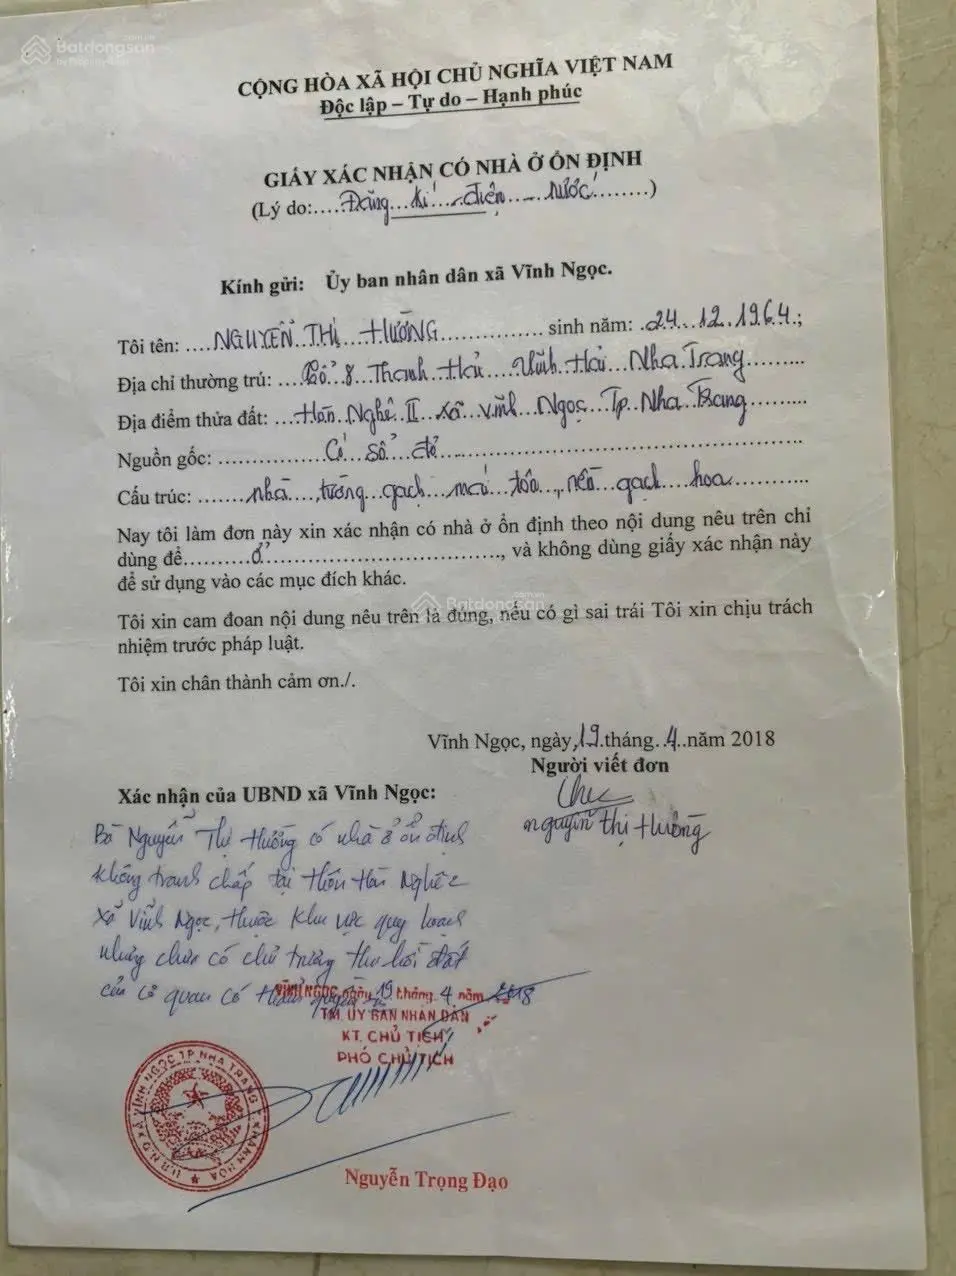 Batdongsan
.com.vn
by PropertyGuru
CỘNG HÒA XÃ HỘI CHỦ NGHĨA VIỆT NAM
Độc lập – Tự do – Hạnh phúc
GIẤY XÁC NHẬN CÓ NHÀ Ở ỔN ĐỊNH
(Lý do:.....Đăng kí điện nước........)
Kính gửi: Ủy ban nhân dân xã Vĩnh Ngọc.
Tôi tên: ....NGUYỄN THỊ HƯỜNG............... sinh năm: .24.12.1964.;
Địa chỉ thường trú: ....Tổ 8 Thanh Hải Vĩnh Hải Nha Trang.........
Địa điểm thửa đất: ...Hòn Nghê II xã Vĩnh Ngọc Tp Nha Trang.........
Nguồn gốc: ..................Có sổ đỏ..................................................
Cấu trúc: ........nhà, tường gạch mái tôn, nền gạch hoa............
Nay tôi làm đơn này xin xác nhận có nhà ở ổn định theo nội dung nêu trên chỉ
dùng để...........ở....................................., và không dùng giấy xác nhận này
để sử dụng vào các mục đích khác.
Batdongsan
.com.vn
Tôi xin cam đoan nội dung nêu trên là đúng, nếu có gì sai trái Tôi xin chịu trách
nhiệm trước pháp luật.
Tôi xin chân thành cảm ơn./.
Vĩnh Ngọc, ngày 19 tháng 4 năm 2018
Người viết đơn
Xác nhận của UBND xã Vĩnh Ngọc:
nguyễn thị Hường
Bà Nguyễn Thị Hường có nhà ở ổn định
không tranh chấp tại thôn Hòn Nghê 2
xã Vĩnh Ngọc, thuộc khu vực quy hoạch
nhưng chưa có chủ trương thu hồi đất
của cơ quan có thẩm quyền
VĨNH NGỌC, ngày 19 tháng 4 năm 2018
TM. ỦY BAN NHÂN DÂN
KT. CHỦ TỊCH
PHÓ CHỦ TỊCH
U.B.N.D XÃ VĨNH NGỌC T.P NHA TRANG T. KHÁNH HÒA
Nguyễn Trọng Đạo